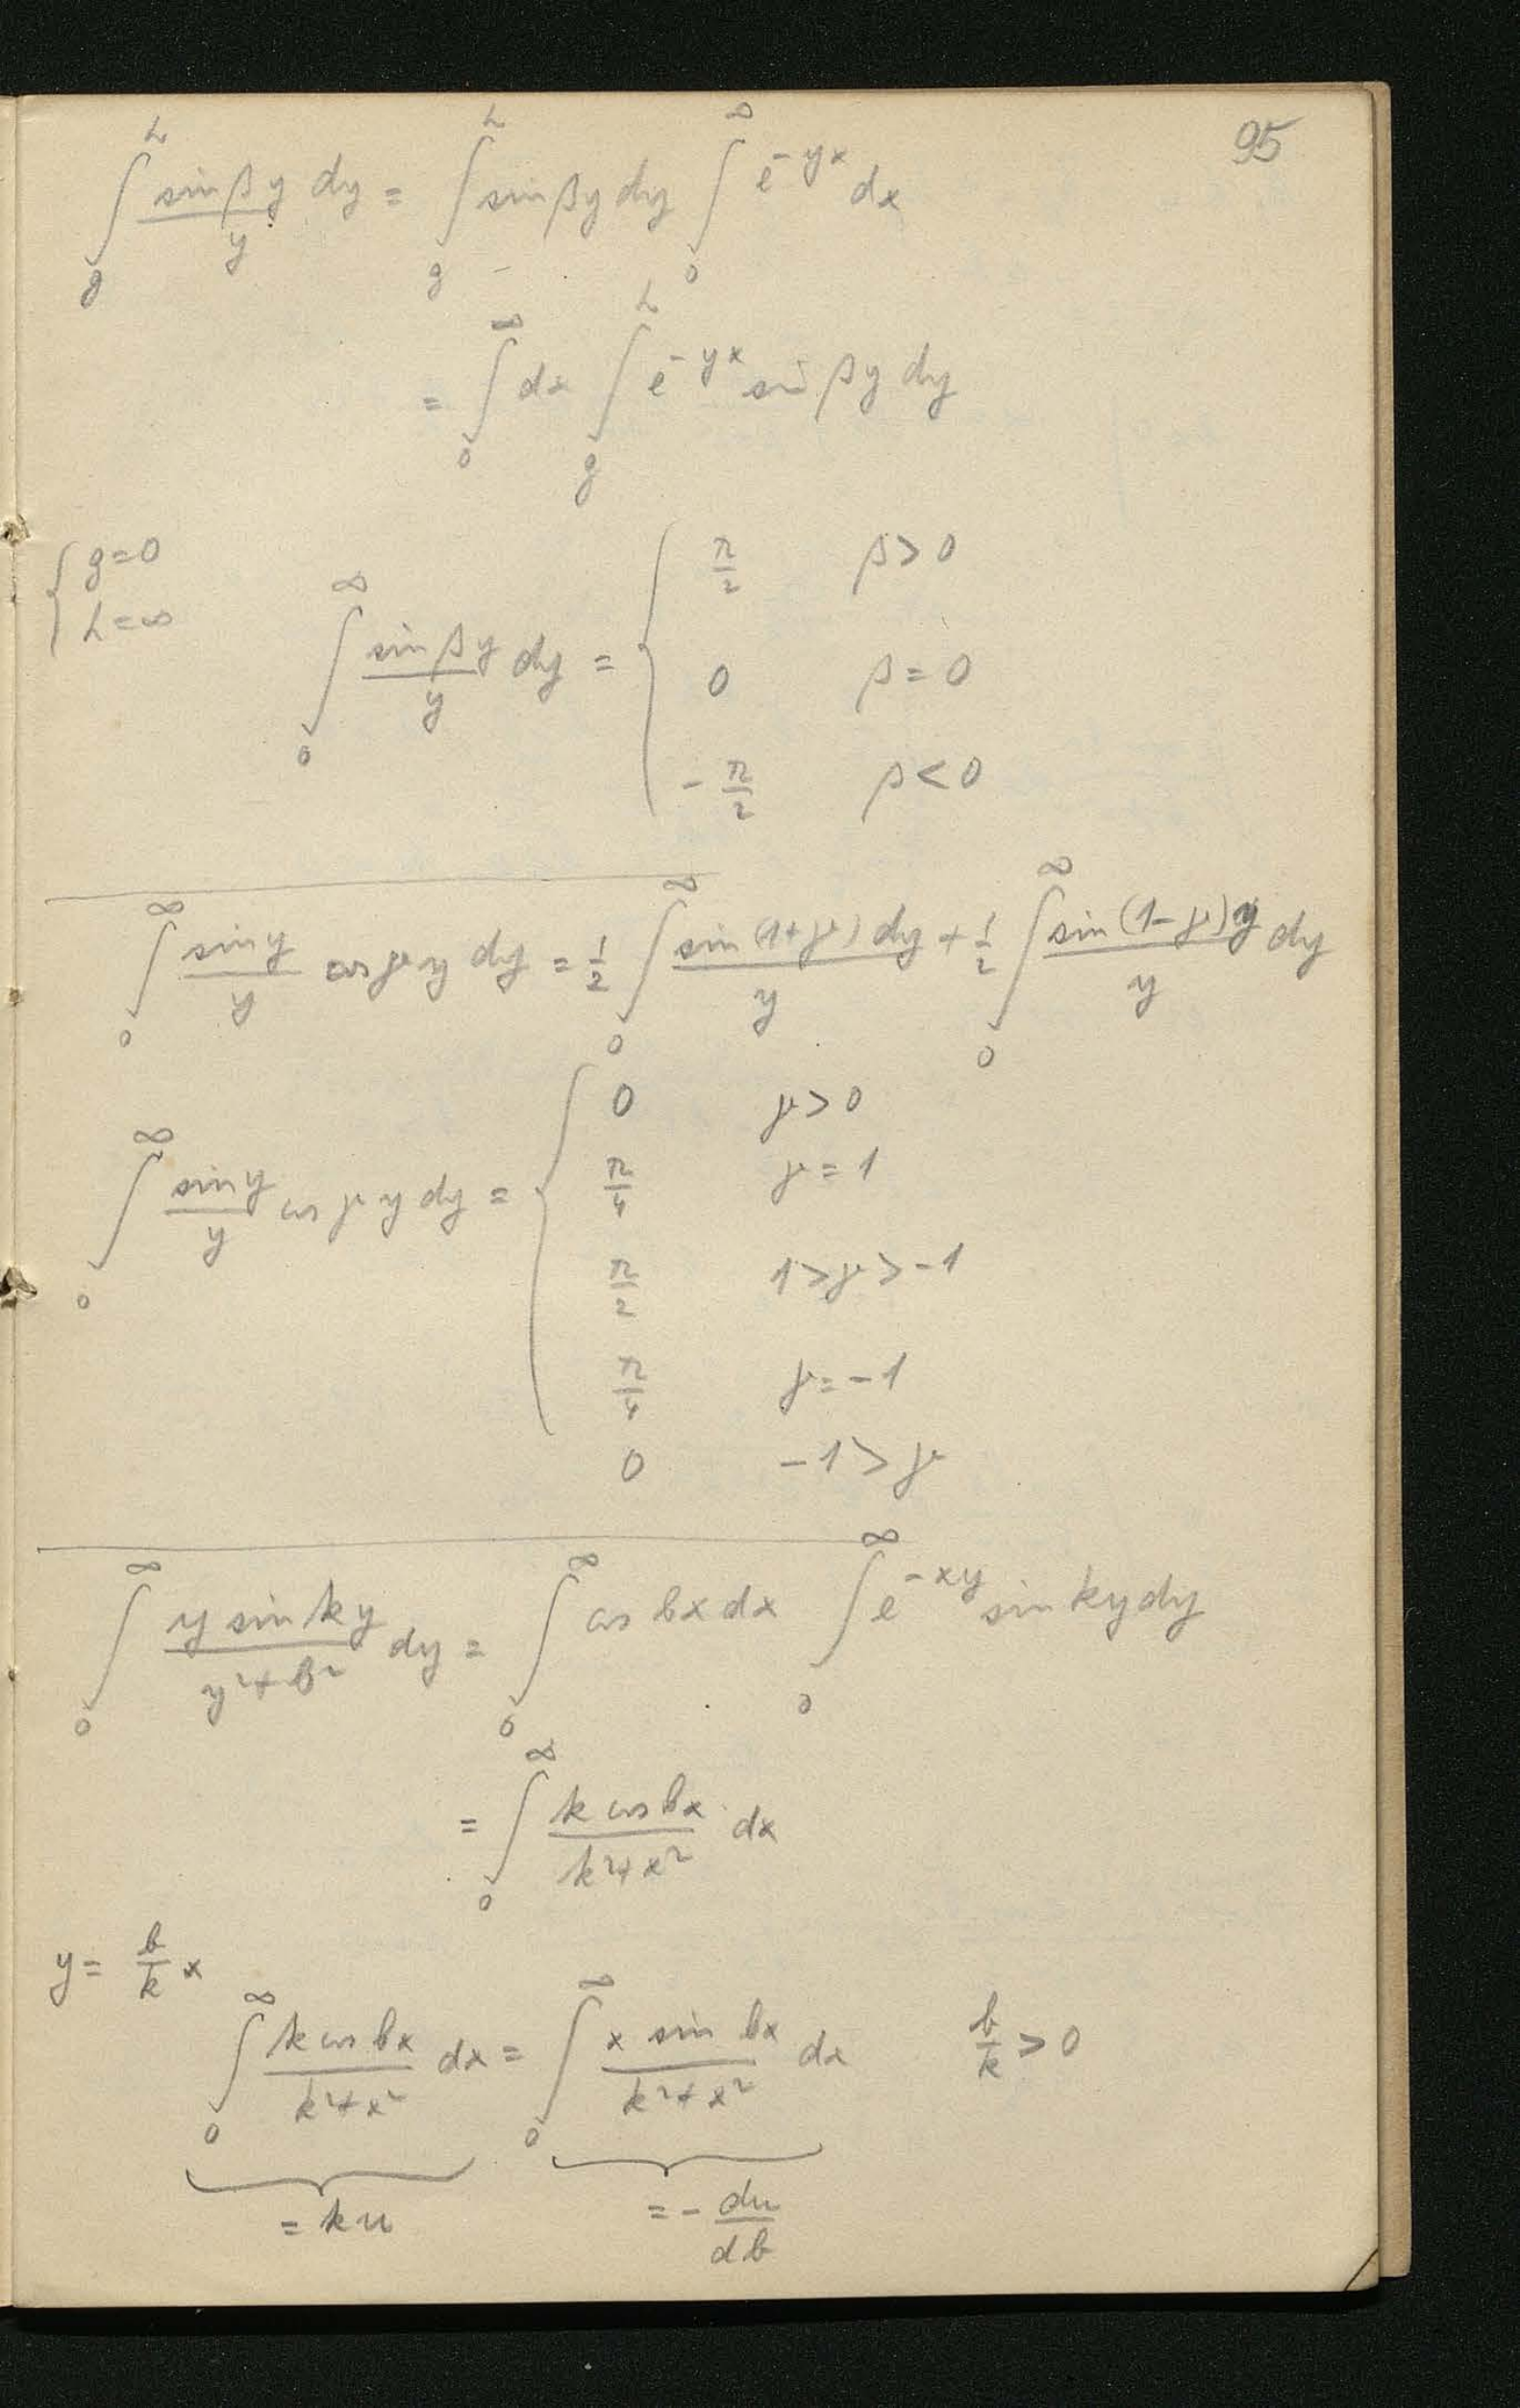 95
∫_g^h (sin βy)/y dy = ∫_g^h sin βy dy ∫_0^∞ e^{-yx} dx
= ∫_0^∞ dx ∫_g^h e^{-yx} sin βy dy
{ g=0
h=∞
∫_0^∞ (sin βy)/y dy = { π/2 β>0
0 β=0
-π/2 β<0
∫_0^∞ (sin y)/y cos μy dy = 1/2 ∫_0^∞ (sin(1+μ) dy)/y + 1/2 ∫_0^∞ (sin(1-μ)y)/y dy
∫_0^∞ (sin y)/y cos μ y dy = { 0 μ>0
π/4 μ=1
π/2 1>μ>-1
π/4 μ=-1
0 -1>μ
∫_0^∞ (y sin ky)/(y²+b²) dy = ∫_0^∞ cos bx dx ∫_0^∞ e^{-xy} sin ky dy
= ∫_0^∞ (k cos bx)/(k²+x²) dx
y = b/k x
∫_0^∞ (k cos bx)/(k²+x²) dx = ∫_0^∞ (x sin bx)/(k²+x²) dx b/k > 0
= ku = - du/db